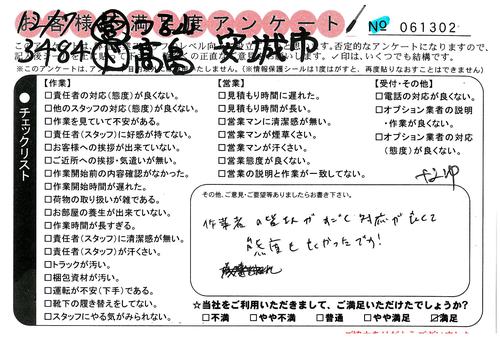 お客様満足度アンケート
No 061302
安城市
※このアンケートは、
(※情報保護シールは1度はがすと、再度貼りなおすことはできません)
●チェックリスト
【作業】
□責任者の対応(態度)が良くない。
□他のスタッフの対応(態度)が良くない。
□作業を見ていて不安がある。
□責任者(スタッフ)に好感が持てない。
□お客様への挨拶が出来ていない。
□ご近所への挨拶・気遣いが無い。
□作業開始前の内容確認がなかった。
□作業開始時間が遅れた。
□荷物の取り扱いが雑である。
□お部屋の養生が出来ていない。
□作業時間が長すぎる。
□責任者(スタッフ)に清潔感が無い。
□責任者(スタッフ)が汗くさい。
□トラックが汚い。
□梱包資材が汚い。
□運転が不安(下手)である。
□靴下の履き替えをしてない。
□スタッフにやる気がみられない。
【営業】
□見積もり時間に遅れた。
□見積もり時間が長い。
□営業マンに清潔感が無い。
□営業マンが煙草くさい。
□営業マンが汗くさい。
□営業態度が良くない。
□営業の説明と作業が一致してない。
【受付・その他】
□電話の対応が良くない。
□オプション業者の説明
・作業が良くない。
□オプション業者の対応
(態度)が良くない。
その他、ご意見・ご要望等ありましたらお書き下さい。
作業者の皆さんがすごく対応が良くて
態度も良かったです!
☆当社をご利用いただきまして、ご満足いただけたでしょうか?
□不満 □やや不満 □普通 □やや満足 ☑満足